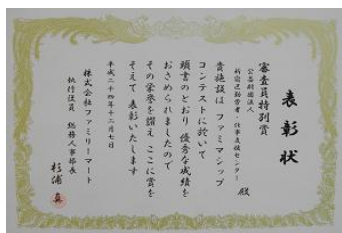 表彰状
審査員特別賞
公益財団法人
新宿区勤労者・仕事支援センター 殿
貴施設は ファミマシップ
コンテストに於いて
頭書のとおり 優秀な成績を
おさめられましたので
その栄誉を讃え ここに賞を
そえて 表彰いたします
平成二十四年十二月七日
株式会社ファミリーマート
執行役員 総務人事部長
杉浦 真